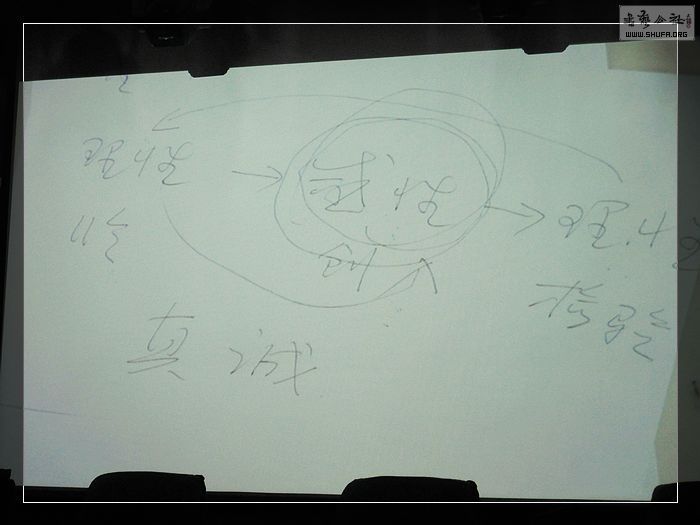 书艺公社
WWW.SHUFA.ORG
理性
感性
理性
创
检验
真诚